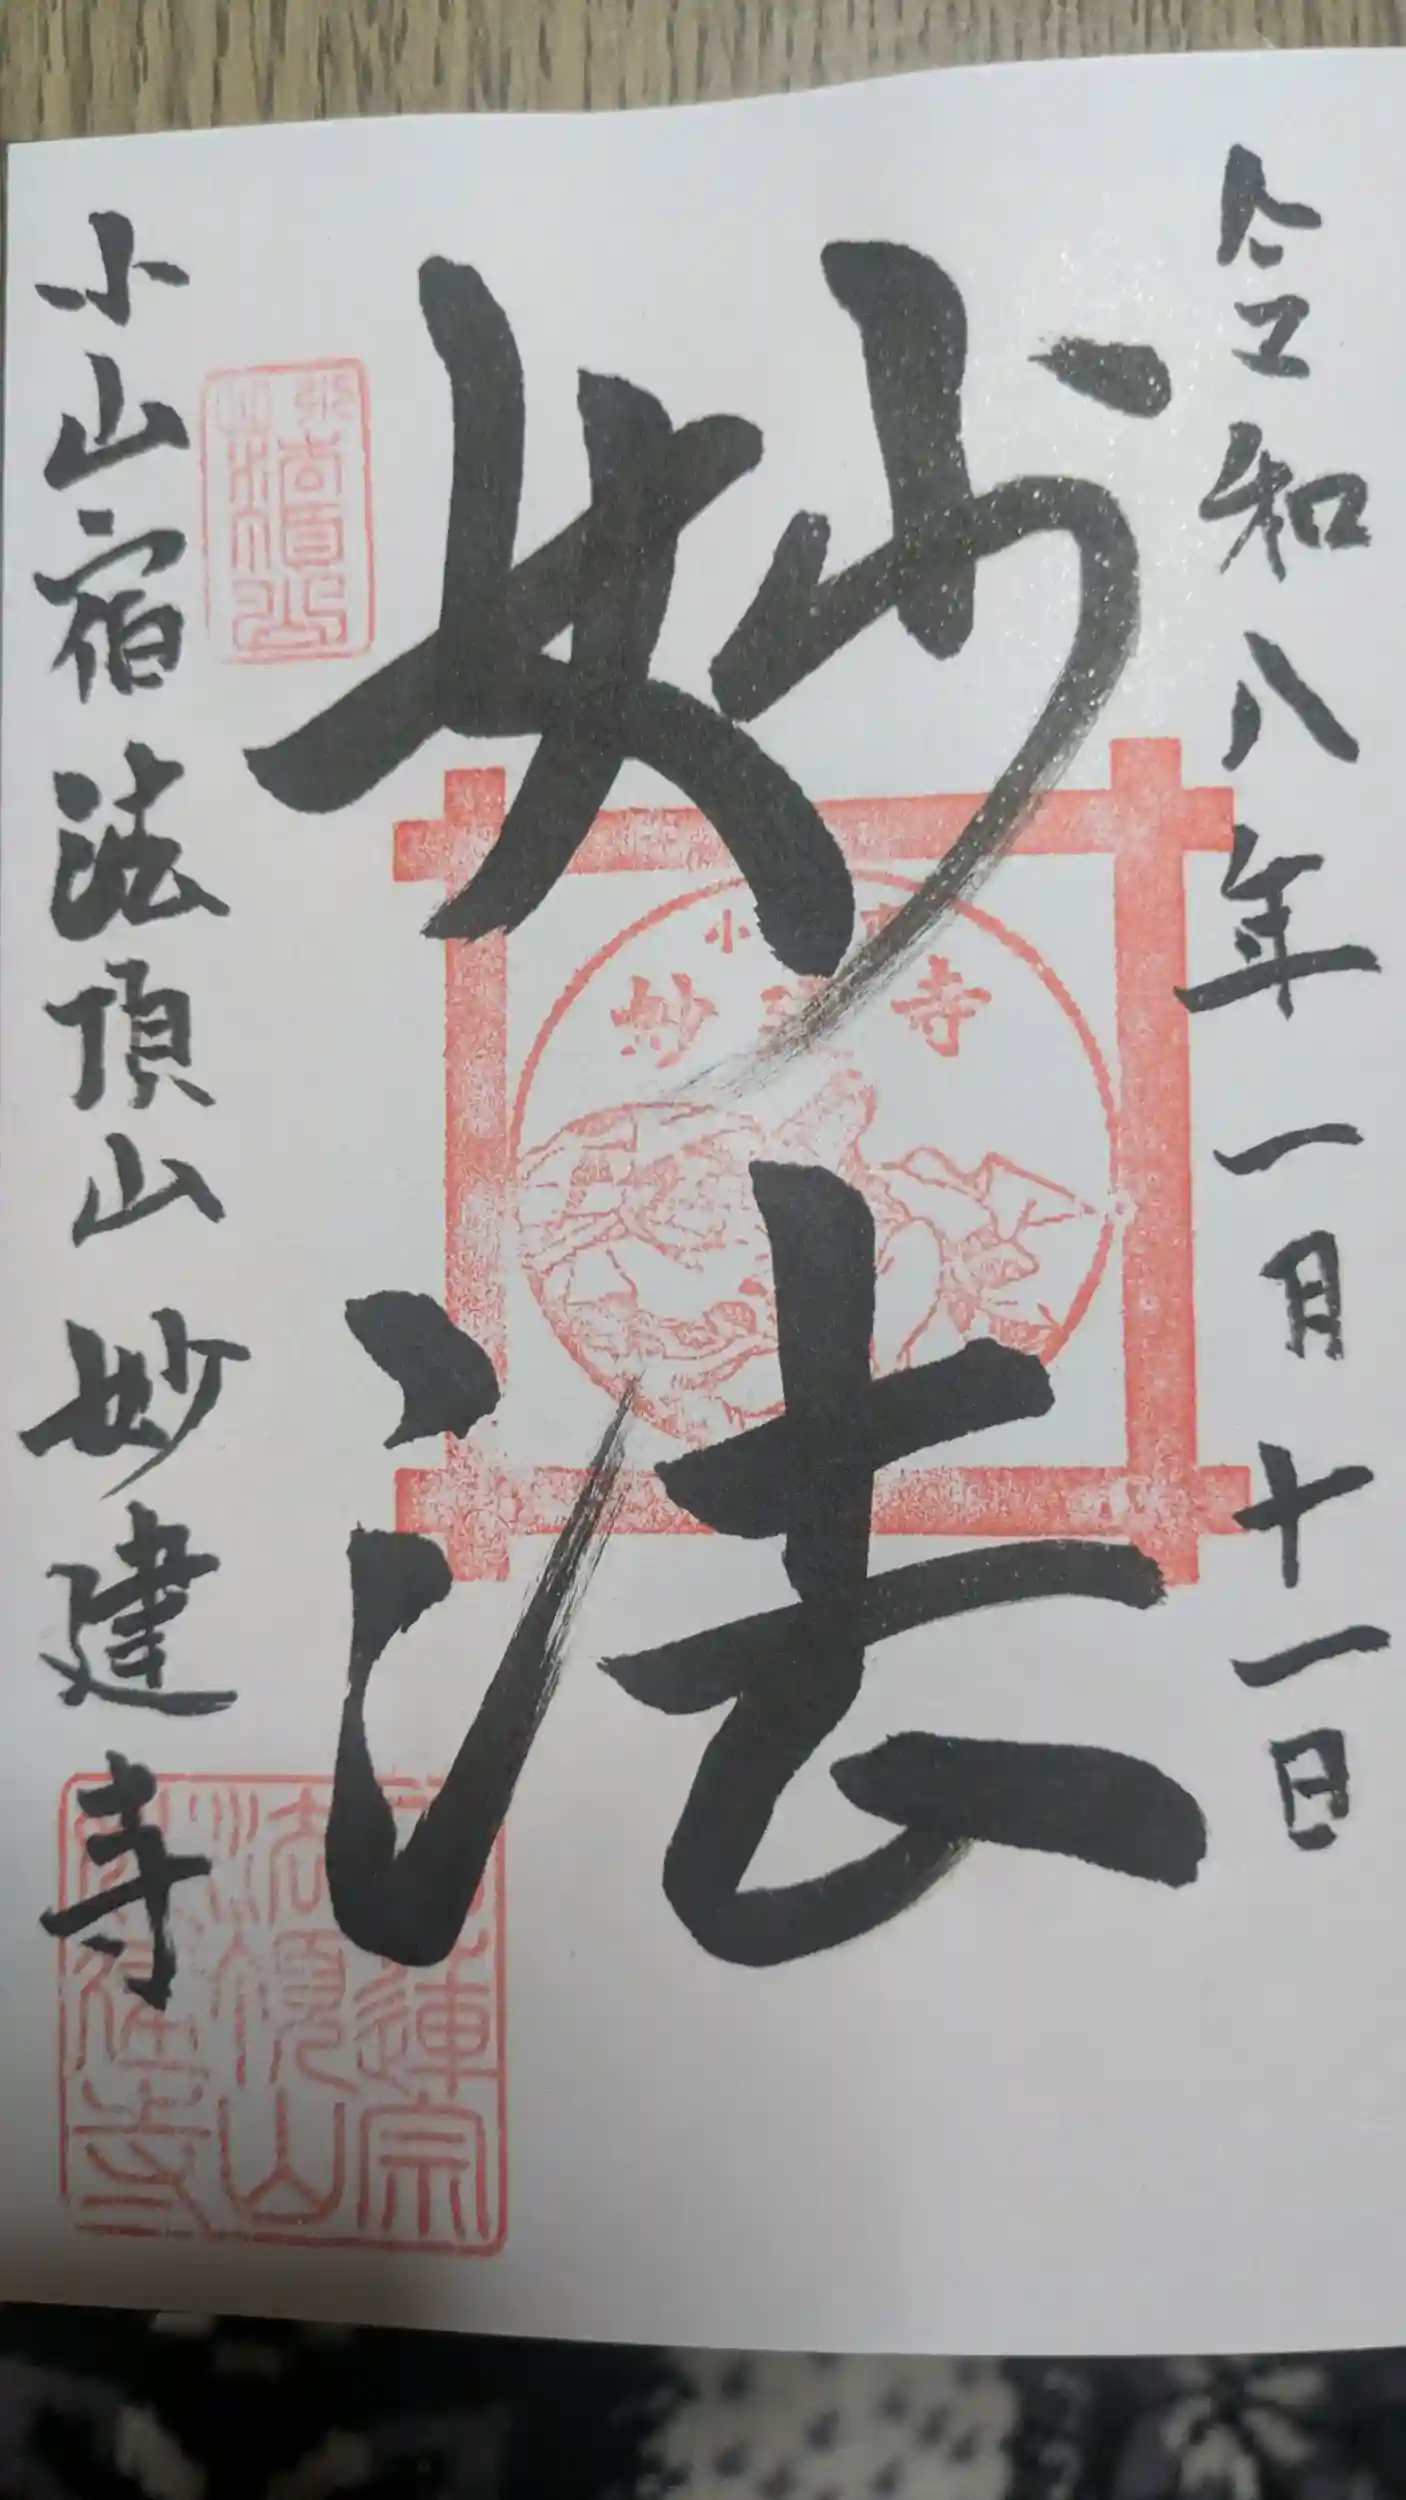 令和八年一月十一日
妙法
小山宿 法頂山 妙建寺
小
妙建寺
蓮宗
法頂山
妙建寺